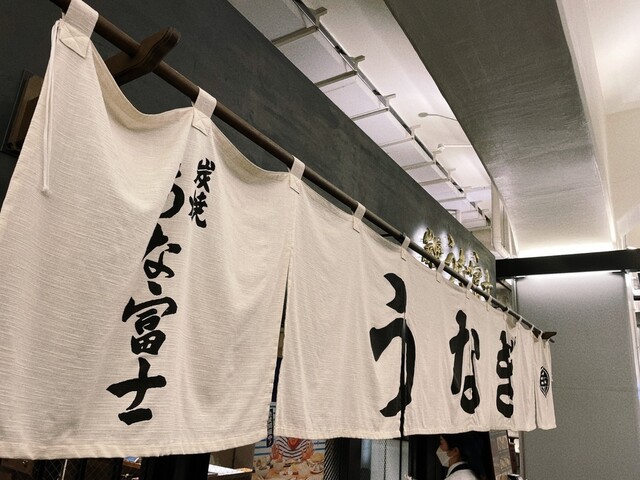 炭焼
うな富士
うなぎ